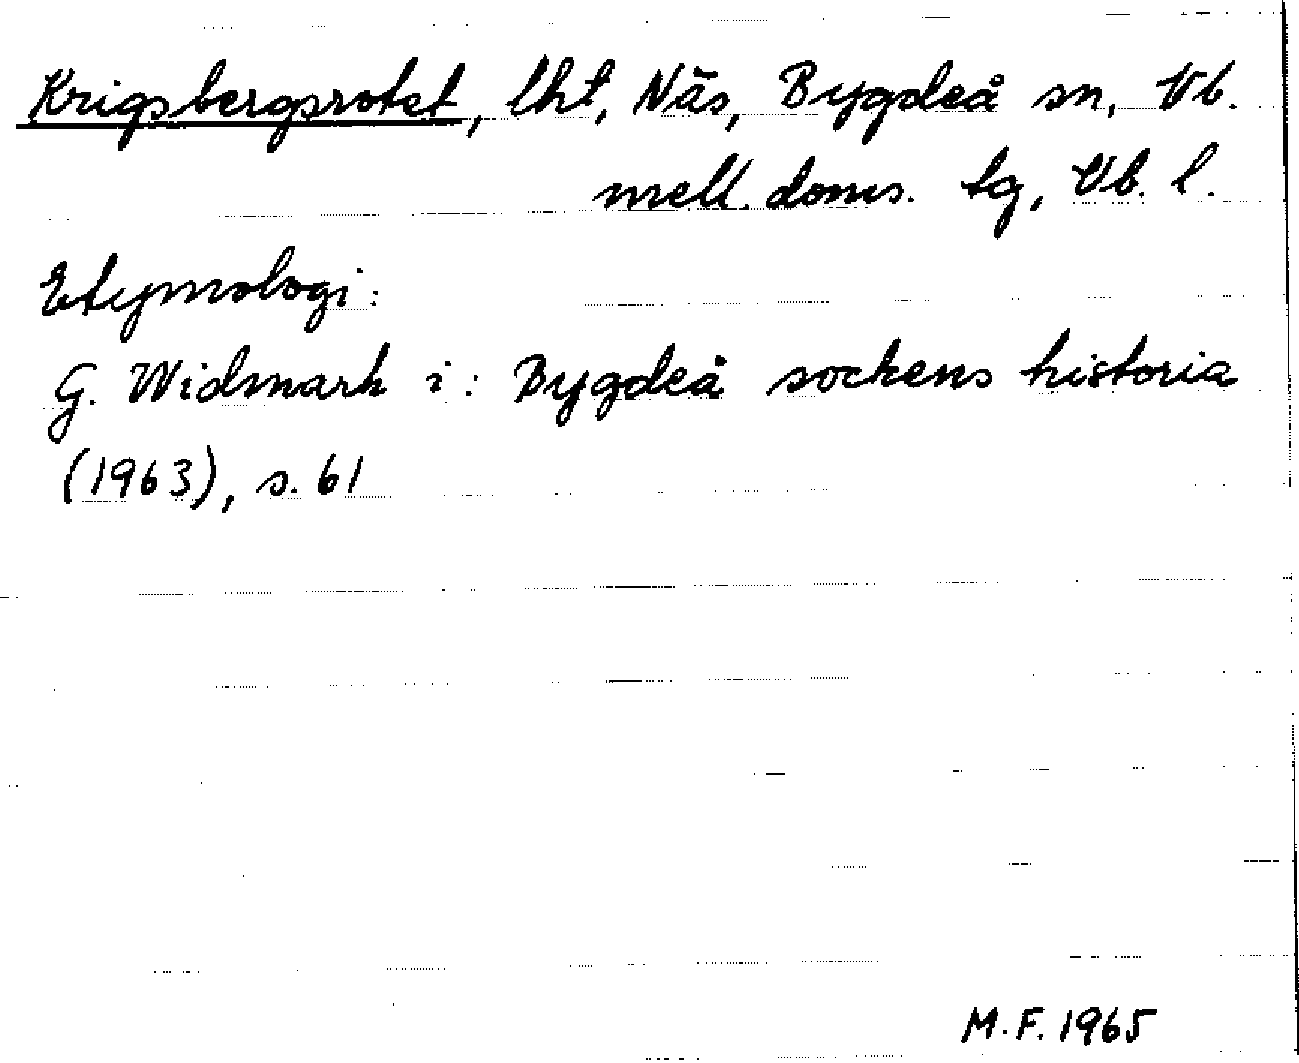 Krigsbergsrotet, lht, Näs, Bygdeå sn, Vb.
mell. doms. tg, Vb. l.
Etymologi:
G. Widmark i: Bygdeå sockens historia
(1963), s. 61
M.F. 1965